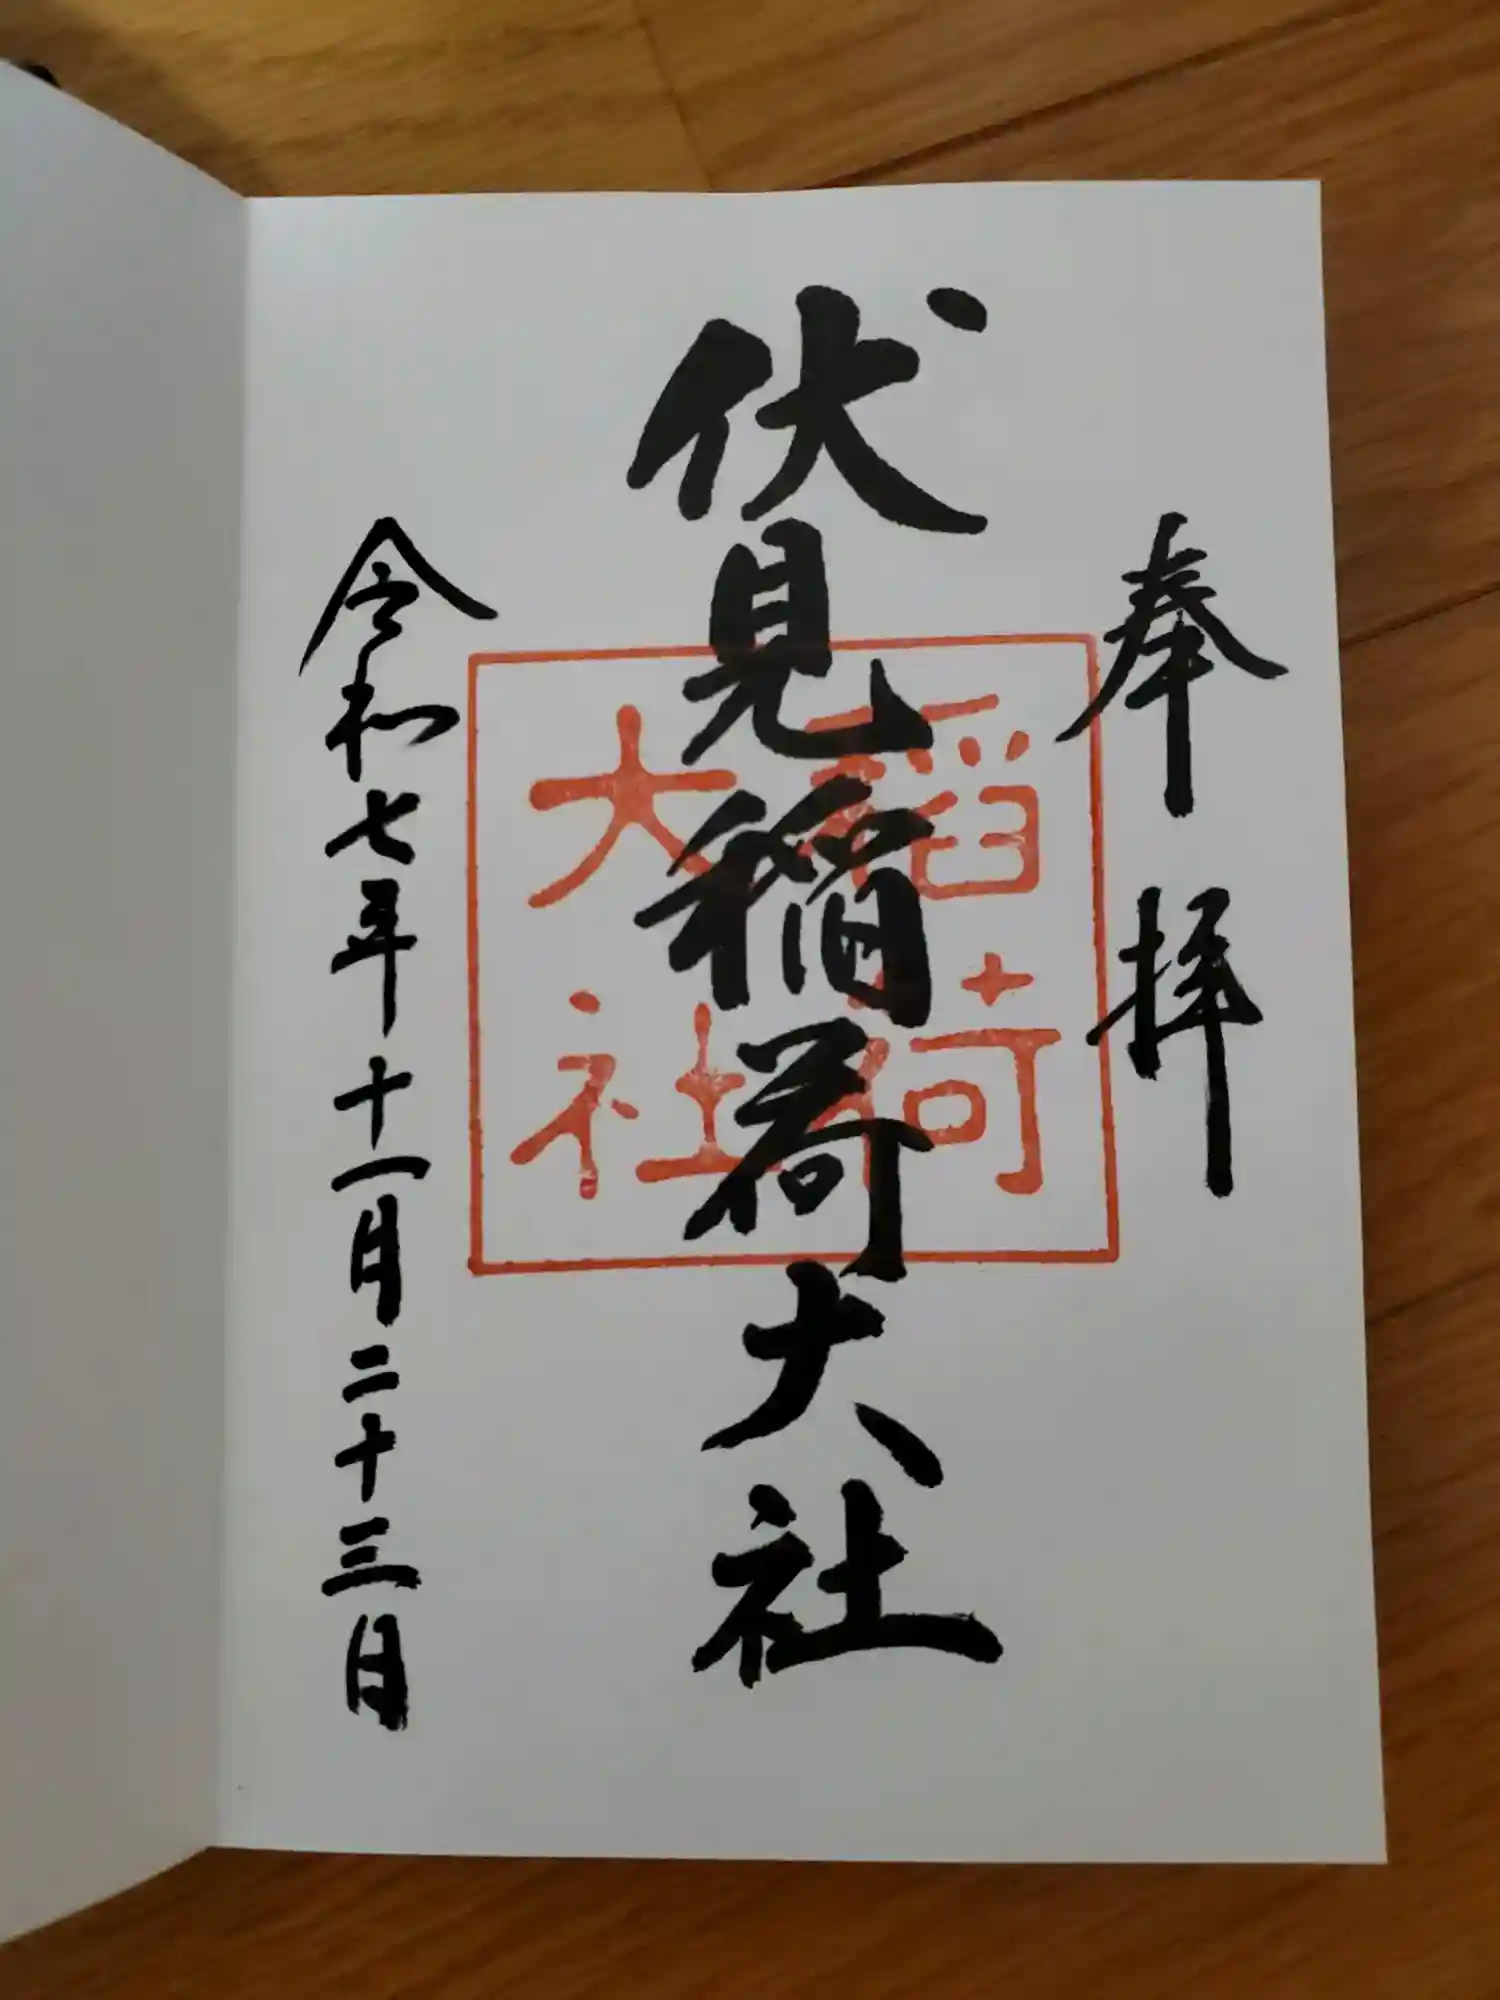 奉拝
伏見稲荷大社
稲荷
大社
令和七年十一月二十三日